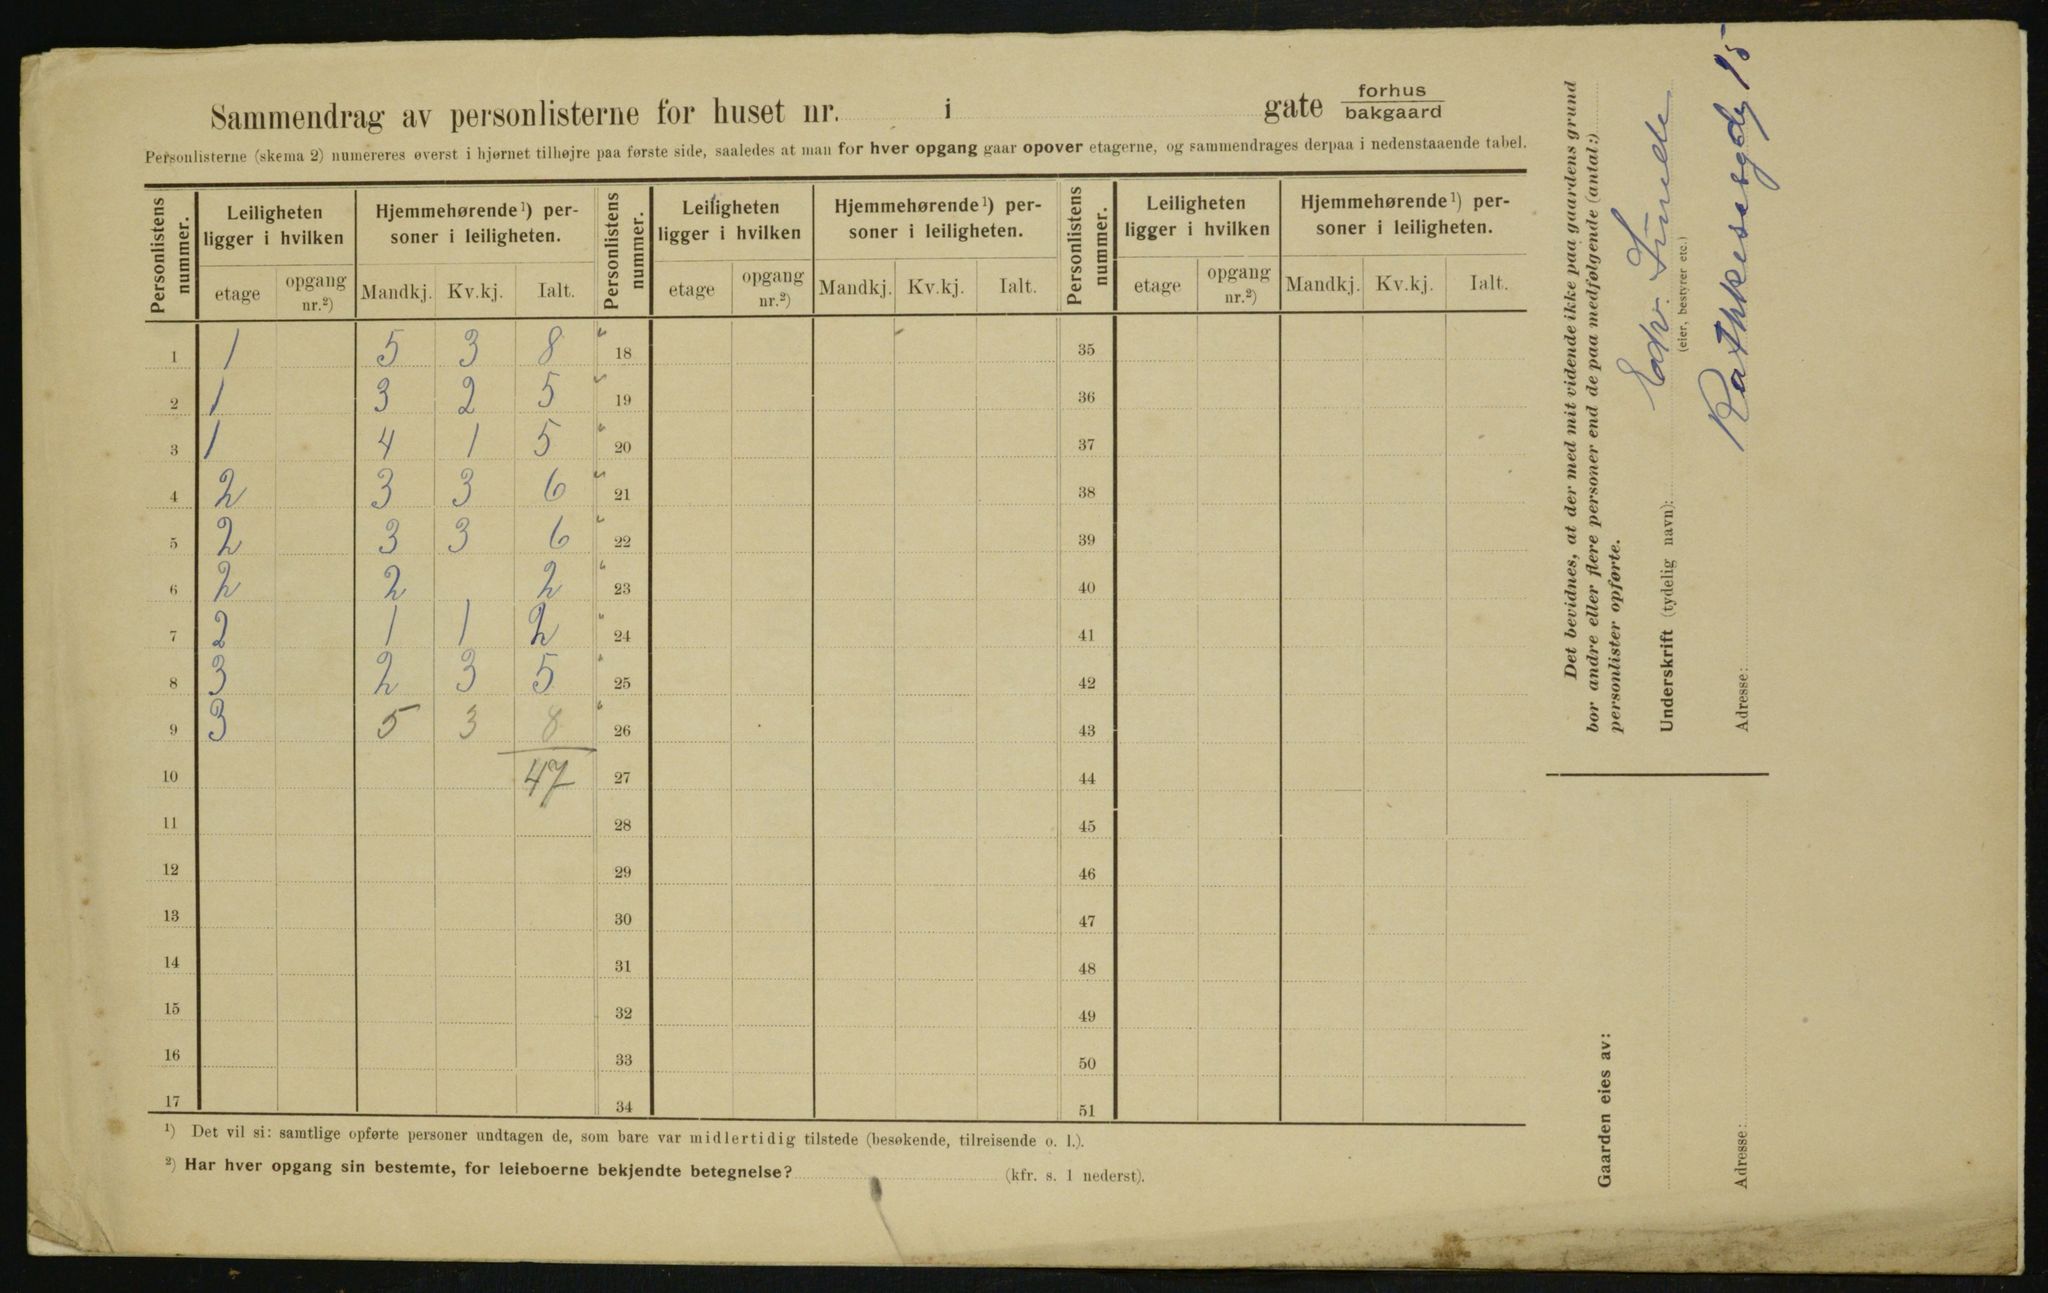 Sammendrag av personlisterne for huset nr. i gate forhus
bakgaard
Personlisterne (skema 2) numereres øverst i hjørnet tilhøjre paa første side, saaledes at man for hver opgang gaar opover etagerne, og sammendrages derpaa i nedenstaaende tabel.
Personlistens nummer. Leiligheten ligger i hvilken Hjemmehørende¹) personer i leiligheten. Personlistens nummer. Leiligheten ligger i hvilken Hjemmehørende¹) personer i leiligheten. Personlistens nummer. Leiligheten ligger i hvilken Hjemmehørende¹) personer i leiligheten.
etage opgang nr.²) Mandkj. Kv.kj. Ialt. etage opgang nr.²) Mandkj. Kv.kj. Ialt. etage opgang nr.²) Mandkj. Kv.kj. Ialt.
1 1 5 3 8 18 35
2 1 3 2 5 19 36
3 1 4 1 5 20 37
4 2 3 3 6 21 38
5 2 3 3 6 22 39
6 2 2 2 23 40
7 2 1 1 2 24 41
8 3 2 3 5 25 42
9 3 5 3 8 26 43
10 47 27 44
11 28 45
12 29 46
13 30 47
14 31 48
15 32 49
16 33 50
17 34 51
¹) Det vil si: samtlige opførte personer undtagen de, som bare var midlertidig tilstede (besøkende, tilreisende o. l.).
²) Har hver opgang sin bestemte, for leieboerne bekjendte betegnelse? (kfr. s. 1 nederst).
Det bevidnes, at der med mit vidende ikke paa gaardens grund
bor andre eller flere personer end de paa medfølgende (antal:)
personlister opførte.
Underskrift (tydelig navn): Edv.
(eier, bestyrer etc.)
Adresse: 15
Gaarden eies av:
Adresse: